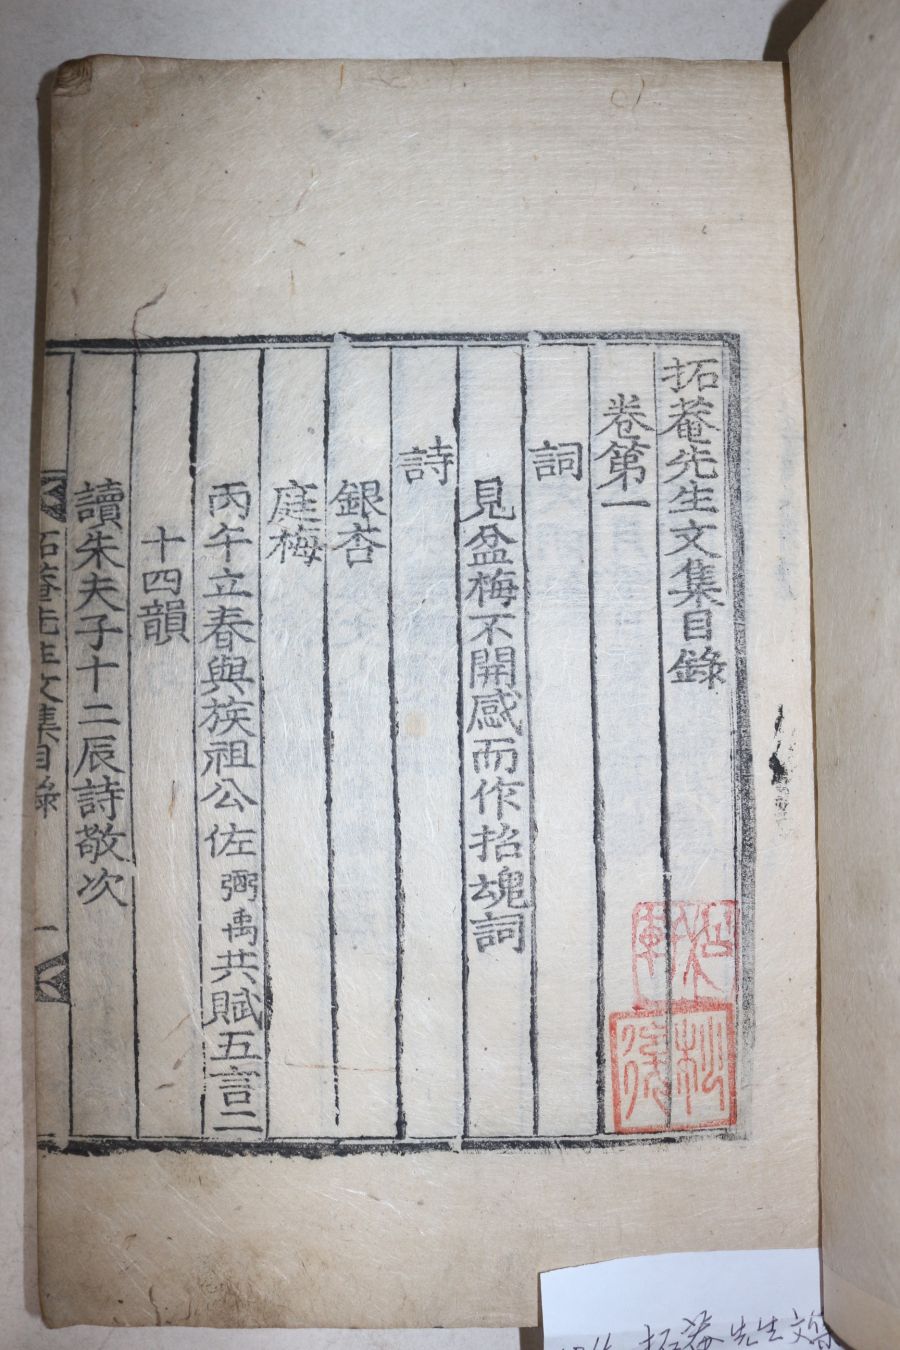 拓菴先生文集目錄
卷第一
詞
見盆梅不開感而作招魂詞
詩
銀杏
庭梅
丙午立春與族祖公佐弼禹共賦五言二
十四韻
讀朱夫子十二辰詩敬次
拓菴先生文集目錄 一
拓菴先生文集